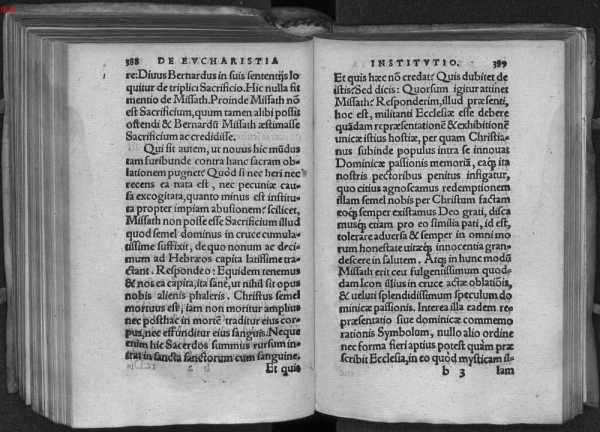 388 DE EVCHARISTIA
re: Diuus Bernardus in suis sententijs lo
quitur de triplici Sacrificio. Hic nulla fit
mentio de Missath. Proinde Missath nõ
est Sacrificium, quum tamen alibi possit
ostendi & Bernardũ Missath æstimasse
Sacrificium ac credidisse.
Qui fit autem, ut nouus hic mũdus
tam furibunde contra hanc sacram ob-
lationem pugnet? Quòd si nec heri nec
recens ea nata est, nec pecuniæ cau-
sa excogitata, quanto minus est institu-
ta propter impiam abusionem? scilicet,
Missath non posse esse Sacrificium illud
quod semel dominus in cruce cumula-
tissime suffixit, de quo nonum ac deci
mum ad Hebræos capita latissime tra-
ctant. Respondeo: Equidem tenemus
& nos ea capita, ita sanè, ut nihil sit opus
nobis alienis phaleris. Christus semel
mortuus est, iam non moritur amplius
nec posthac in mortẽ traditur eius cor-
pus, nec effunditur eius sanguis. Neque
enim hic Sacerdos summus rursum in-
trat in sancta sanctorum cum sanguine.
Et quis
INSTITVTIO. 389
Et quis hæc nõ credat? Quis dubitet de
istis? Sed dicis: Quorsum igitur attinet
Missath? Responderim, illud præsenti,
hoc est, militanti Ecclesiæ esse debere
quãdam repræsentationẽ & exhibitionẽ
unicæ istius hostiæ, per quam Christia-
nus subinde populus intra se innouat
Dominicæ passionis memoriã, eatq́; ita
nostris pectoribus penitus infigatur,
quo citius agnoscamus redemptionem
illam semel nobis per Christum factam
eoq́; semper existamus Deo grati, disca
musq́; etiam pro eo similia pati, id est,
tolerare aduersa & semper in omni mo
rum honestate uitæq́; innocentia gran-
descere in salutem. Atq́; in hunc modũ
Missath erit ceu fulgentissimum quod-
dam Icon illius in cruce actæ oblatiõis,
& ueluti splendidissimum speculum do
minicæ passionis. Interea illa eadem re-
præsentatio siue dominicæ commemo
rationis Symbolum, nullo alio ordine
nec forma fieri aptius potest quàm præ
scribit Ecclesia, in eo quòd mysticam il-
b 3 lam